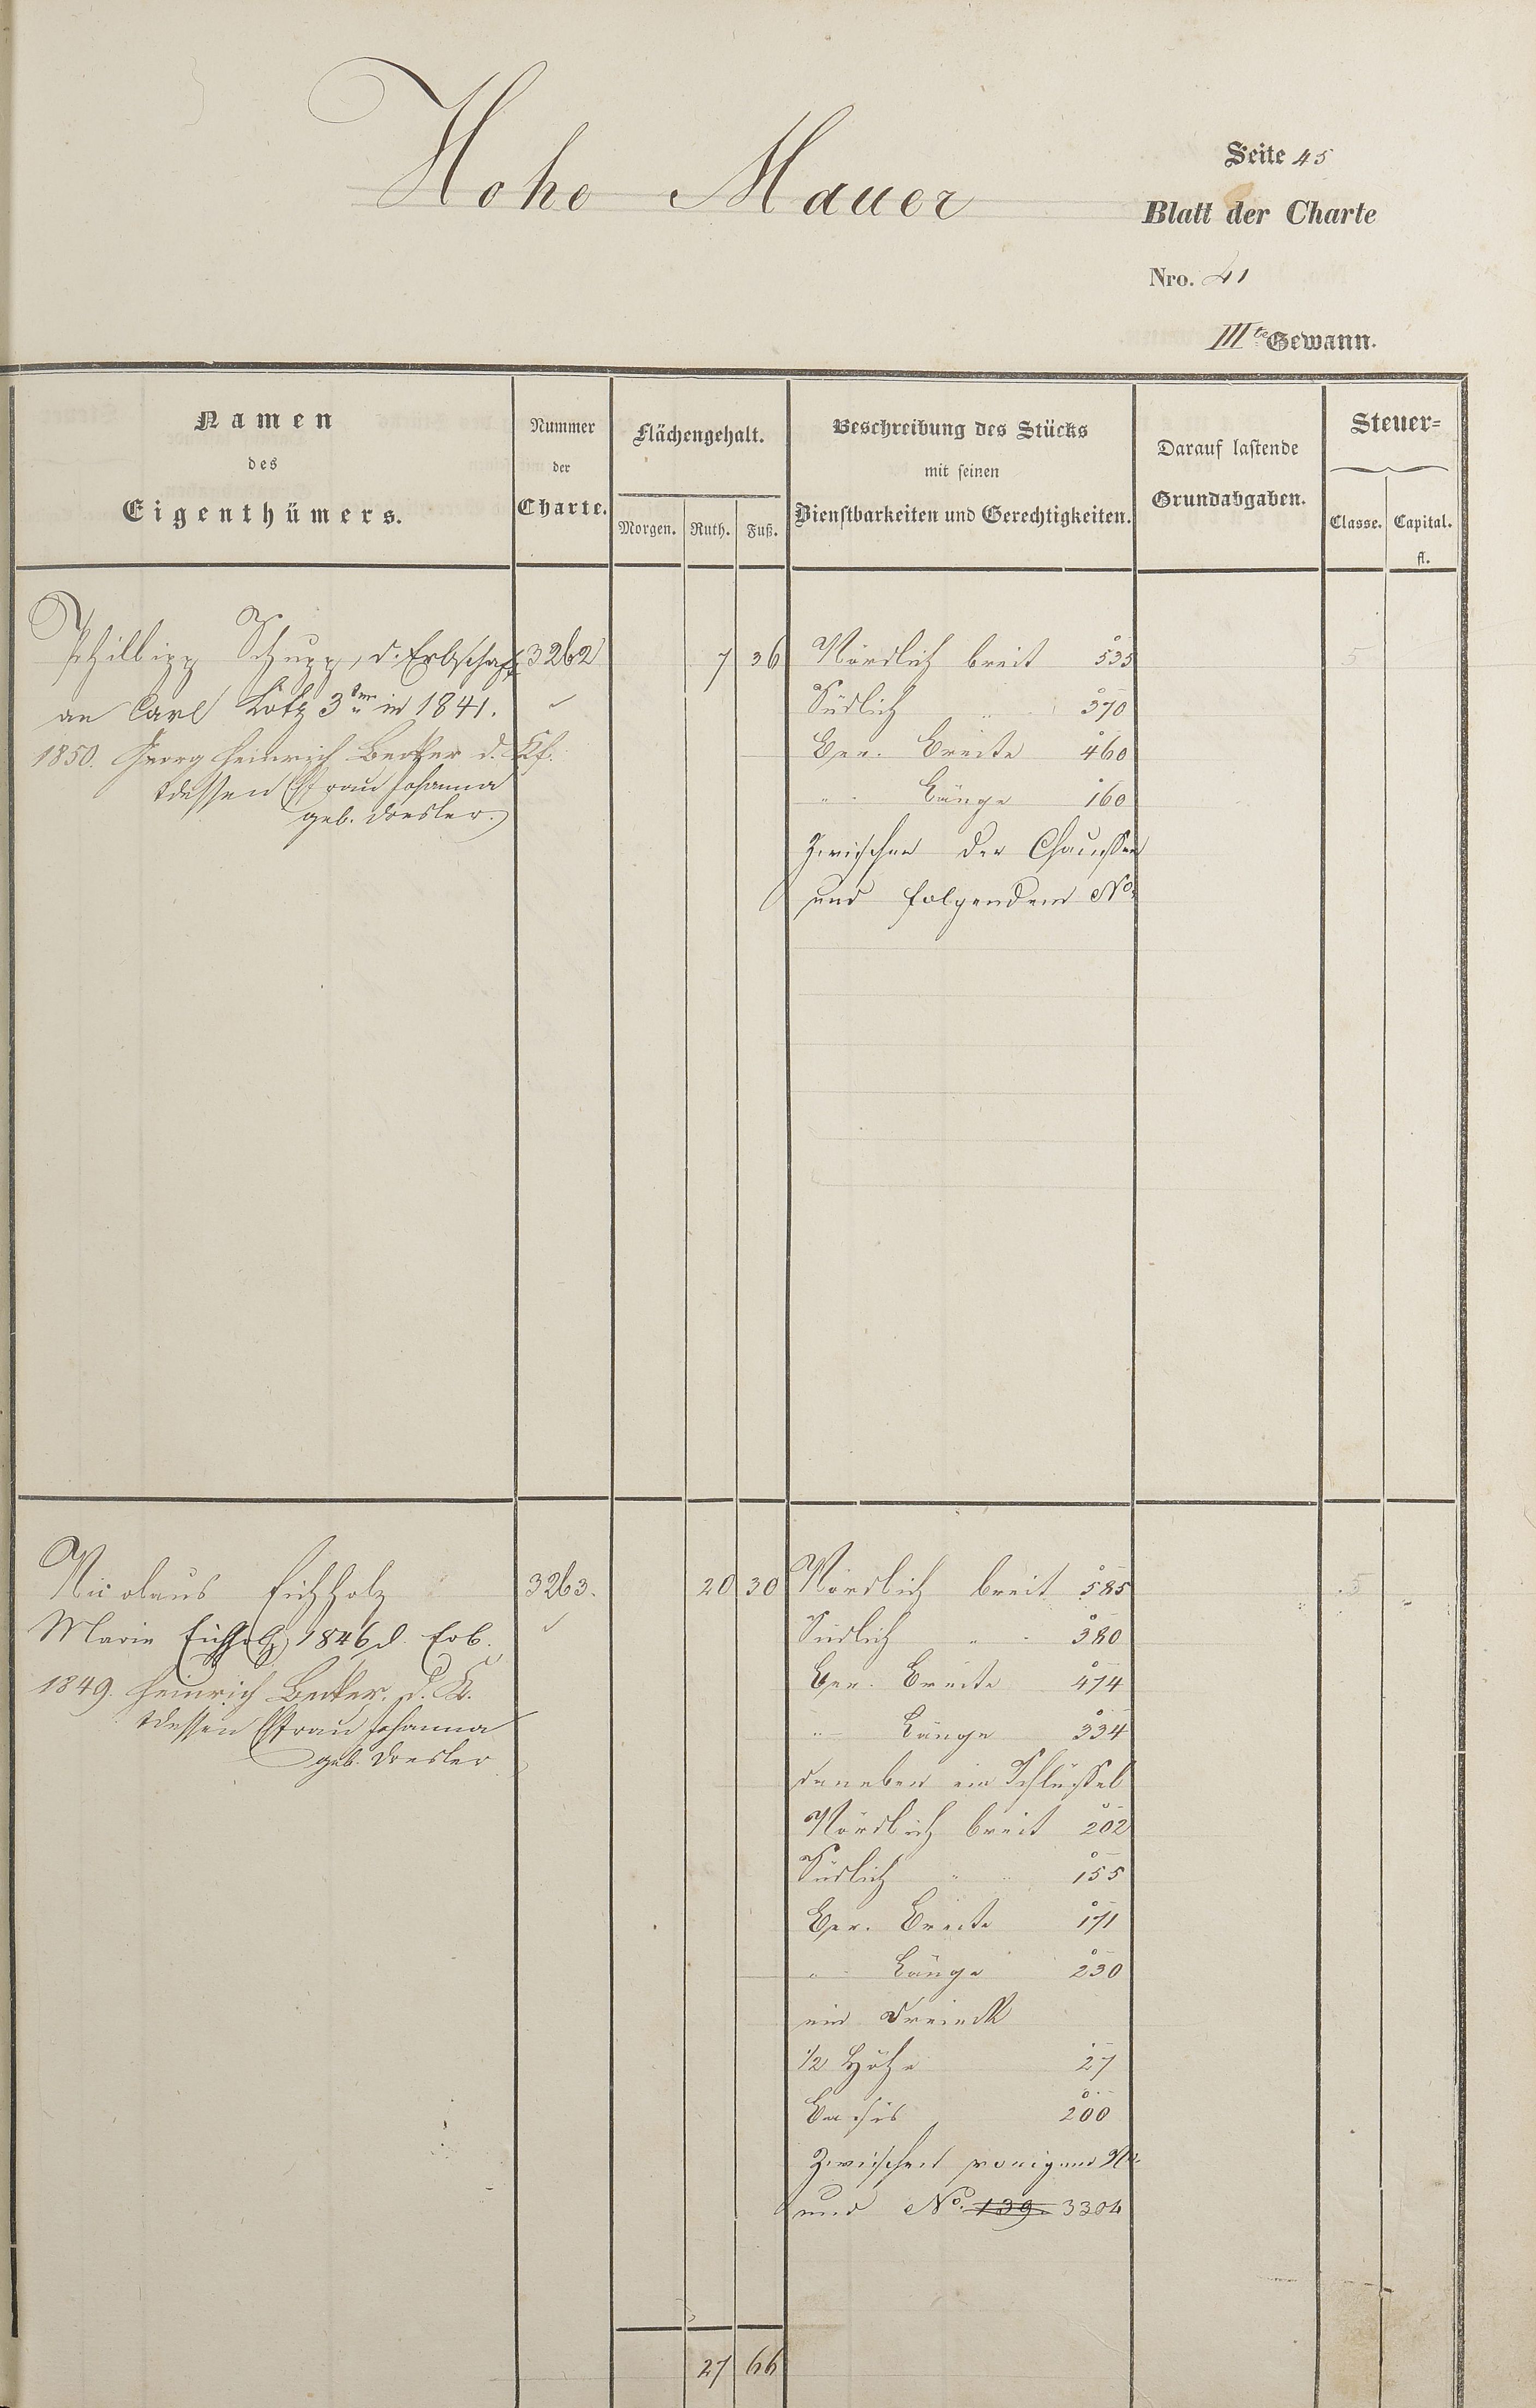 Hohe Mauer
Seite 45
Blatt der Charte
Nro. 41
IIIte Gewann.
Namen
des
Eigenthümers.
Nummer
der
Charte.
Flächengehalt.
Morgen. Ruth. Fuß.
Beschreibung des Stücks
mit seinen
Dienstbarkeiten und Gerechtigkeiten.
Darauf lastende
Grundabgaben.
Steuer-
Classe. Capital.
fl.
Phillipp Schupp, d. Erbschaft 3262 7 36 Nördlich breit 535 5
an Carl Lotz 3ten in 1841. Südlich " 370
1850. Georg Heinrich Becker d. Kf. Ger. Breite 460
dessen Ehfrau Johanna " Länge 160
geb. Dresler.
Zwischen der Chaussee
und folgendem No.
Nicolaus Eichholz 3263. 20 30 Nördlich breit 585 5
Marie Eichholz 1846 d. Erb. Südlich " 380
1849. Heinrich Becker. d. K. Ger. Breite 474
dessen Ehfrau Johanna " Länge 334
geb. Dresler daneben ein Schlüssel
Nördlich breit 202
Südlich " 155
Ger. Breite 171
" Länge 230
ein Dreieck
1/2 Höhe 27
Basis 200
Zwischen vorigem No.
und No. 139. 3304
27 66